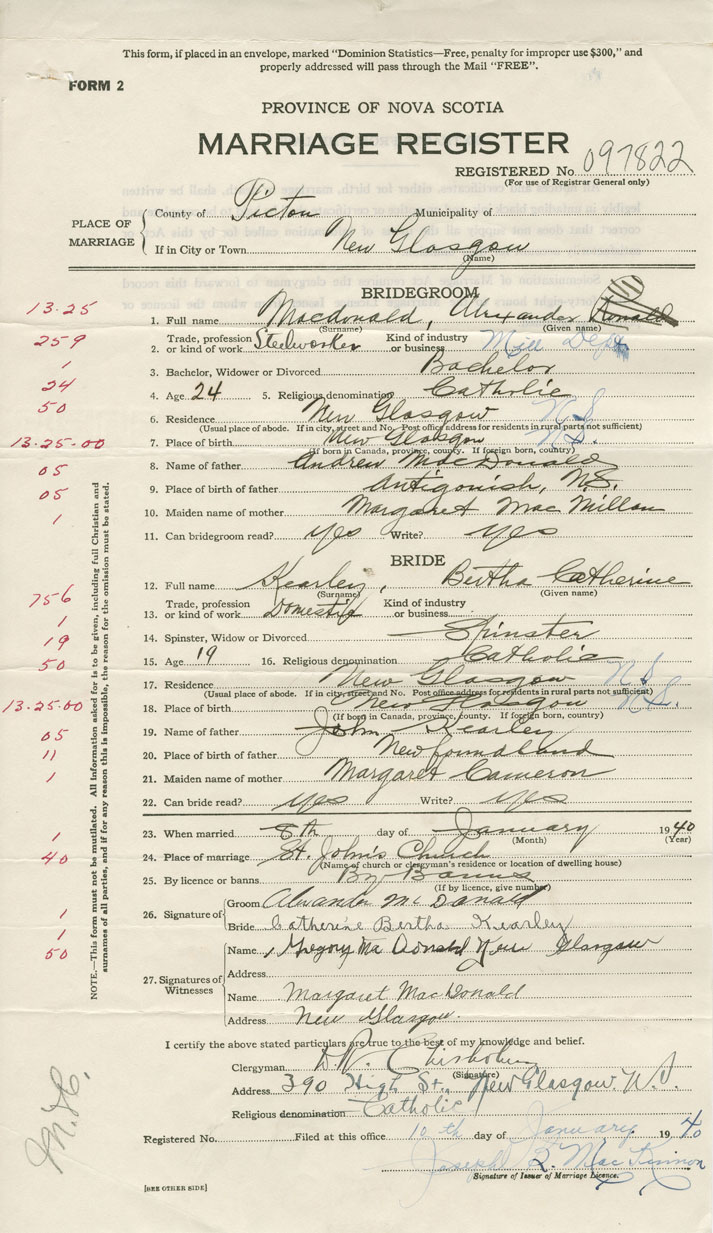 This form, if placed in an envelope, marked "Dominion Statistics—Free, penalty for improper use $300," and
properly addressed will pass through the Mail "FREE".
FORM 2
PROVINCE OF NOVA SCOTIA
MARRIAGE REGISTER
REGISTERED No. 097822
(For use of Registrar General only)
PLACE OF MARRIAGE
County of Pictou Municipality of
If in City or Town New Glasgow
(Name)
BRIDEGROOM
13.25 1. Full name Macdonald, Alexander Ronald
(Surname) (Given name)
259 2. Trade, profession or kind of work Steelworker Kind of industry or business Mill Dept
1 3. Bachelor, Widower or Divorced Bachelor
24 4. Age 24 5. Religious denomination Catholic
50 6. Residence New Glasgow N.S.
(Usual place of abode. If in city, street and No. Post office address for residents in rural parts not sufficient)
13.25.00 7. Place of birth New Glasgow N.S.
(If born in Canada, province, county. If foreign born, country)
05 8. Name of father Andrew MacDonald
05 9. Place of birth of father Antigonish, N.S.
1 10. Maiden name of mother Margaret MacMillan
11. Can bridegroom read? yes Write? yes
BRIDE
12. Full name Kearley, Bertha Catherine
(Surname) (Given name)
756 13. Trade, profession or kind of work Domestic Kind of industry or business
1 14. Spinster, Widow or Divorced Spinster
19 15. Age 19 16. Religious denomination Catholic
50 17. Residence New Glasgow N.S.
(Usual place of abode. If in city, street and No. Post office address for residents in rural parts not sufficient)
13.25.00 18. Place of birth New Glasgow N.S.
(If born in Canada, province, county. If foreign born, country)
05 19. Name of father John Kearley
11 20. Place of birth of father Newfoundland
1 21. Maiden name of mother Margaret Cameron
22. Can bride read? yes Write? yes
1 23. When married 8th day of January 1940
(Month) (Year)
40 24. Place of marriage St. John's Church
(Name of church or clergyman's residence or location of dwelling house)
25. By licence or banns By Banns
(If by licence, give number)
26. Signature of
1 Groom Alexander McDonald
1 Bride Catherine Bertha Kearley
27. Signatures of Witnesses
50 Name Gregory MacDonald New Glasgow
Address
Name Margaret MacDonald
Address New Glasgow.
I certify the above stated particulars are true to the best of my knowledge and belief.
Clergyman D. Chisholm
(Signature)
Address 390 High St., New Glasgow N.S.
Religious denomination Catholic
Registered No. Filed at this office 10th day of January 1940
Joseph B. MacKinnon
Signature of Issuer of Marriage Licence.
[SEE OTHER SIDE]
NOTE.—This form must not be mutilated. All information asked for is to be given, including full Christian and
surnames of all parties, and if for any reason this is impossible, the reason for the omission must be stated.